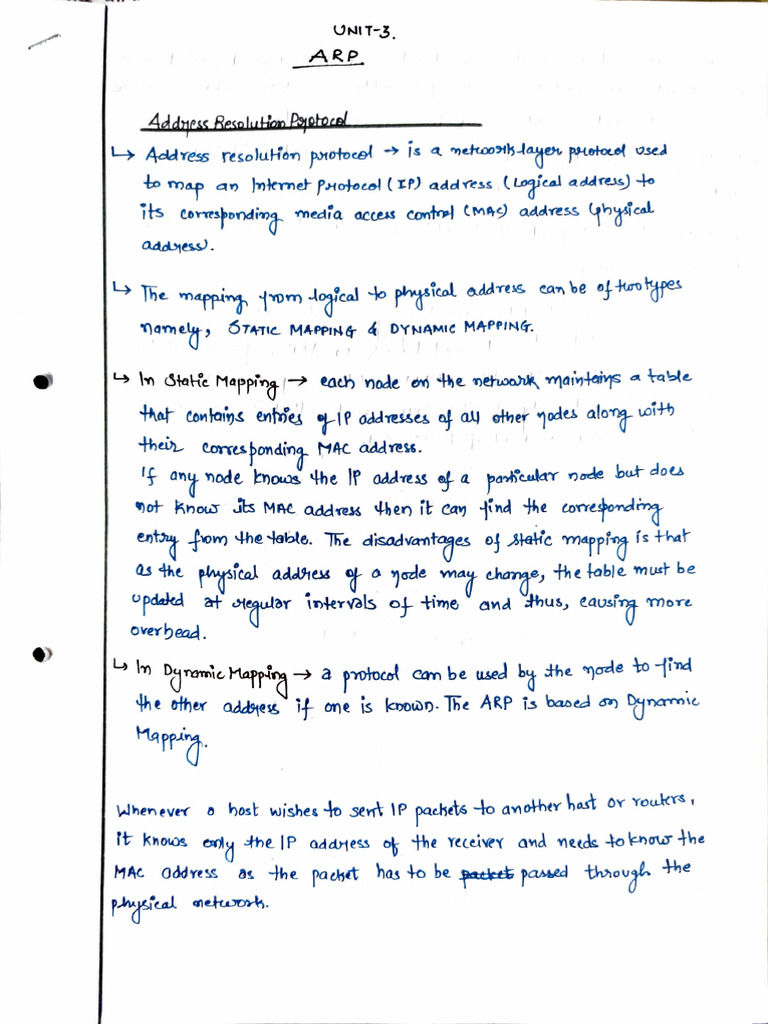 UNIT-3.
ARP
Address Resolution Protocol
↳ Address resolution protocol → is a network layer protocol used
to map an Internet Protocol (IP) address (Logical address) to
its corresponding media access control (MAC) address (physical
address).
↳ The mapping from logical to physical address can be of two types
namely, STATIC MAPPING & DYNAMIC MAPPING.
↳ In Static Mapping → each node on the network maintains a table
that contains entries of IP addresses of all other nodes along with
their corresponding MAC address.
If any node knows the IP address of a particular node but does
not know its MAC address then it can find the corresponding
entry from the table. The disadvantages of static mapping is that
as the physical address of a node may change, the table must be
updated at regular intervals of time and thus, causing more
overhead.
↳ In Dynamic Mapping → a protocol can be used by the node to find
the other address if one is known. The ARP is based on Dynamic
Mapping.
Whenever a host wishes to sent IP packets to another host or routers,
it knows only the IP address of the receiver and needs to know the
MAC address as the packet has to be packet passed through the
physical network.